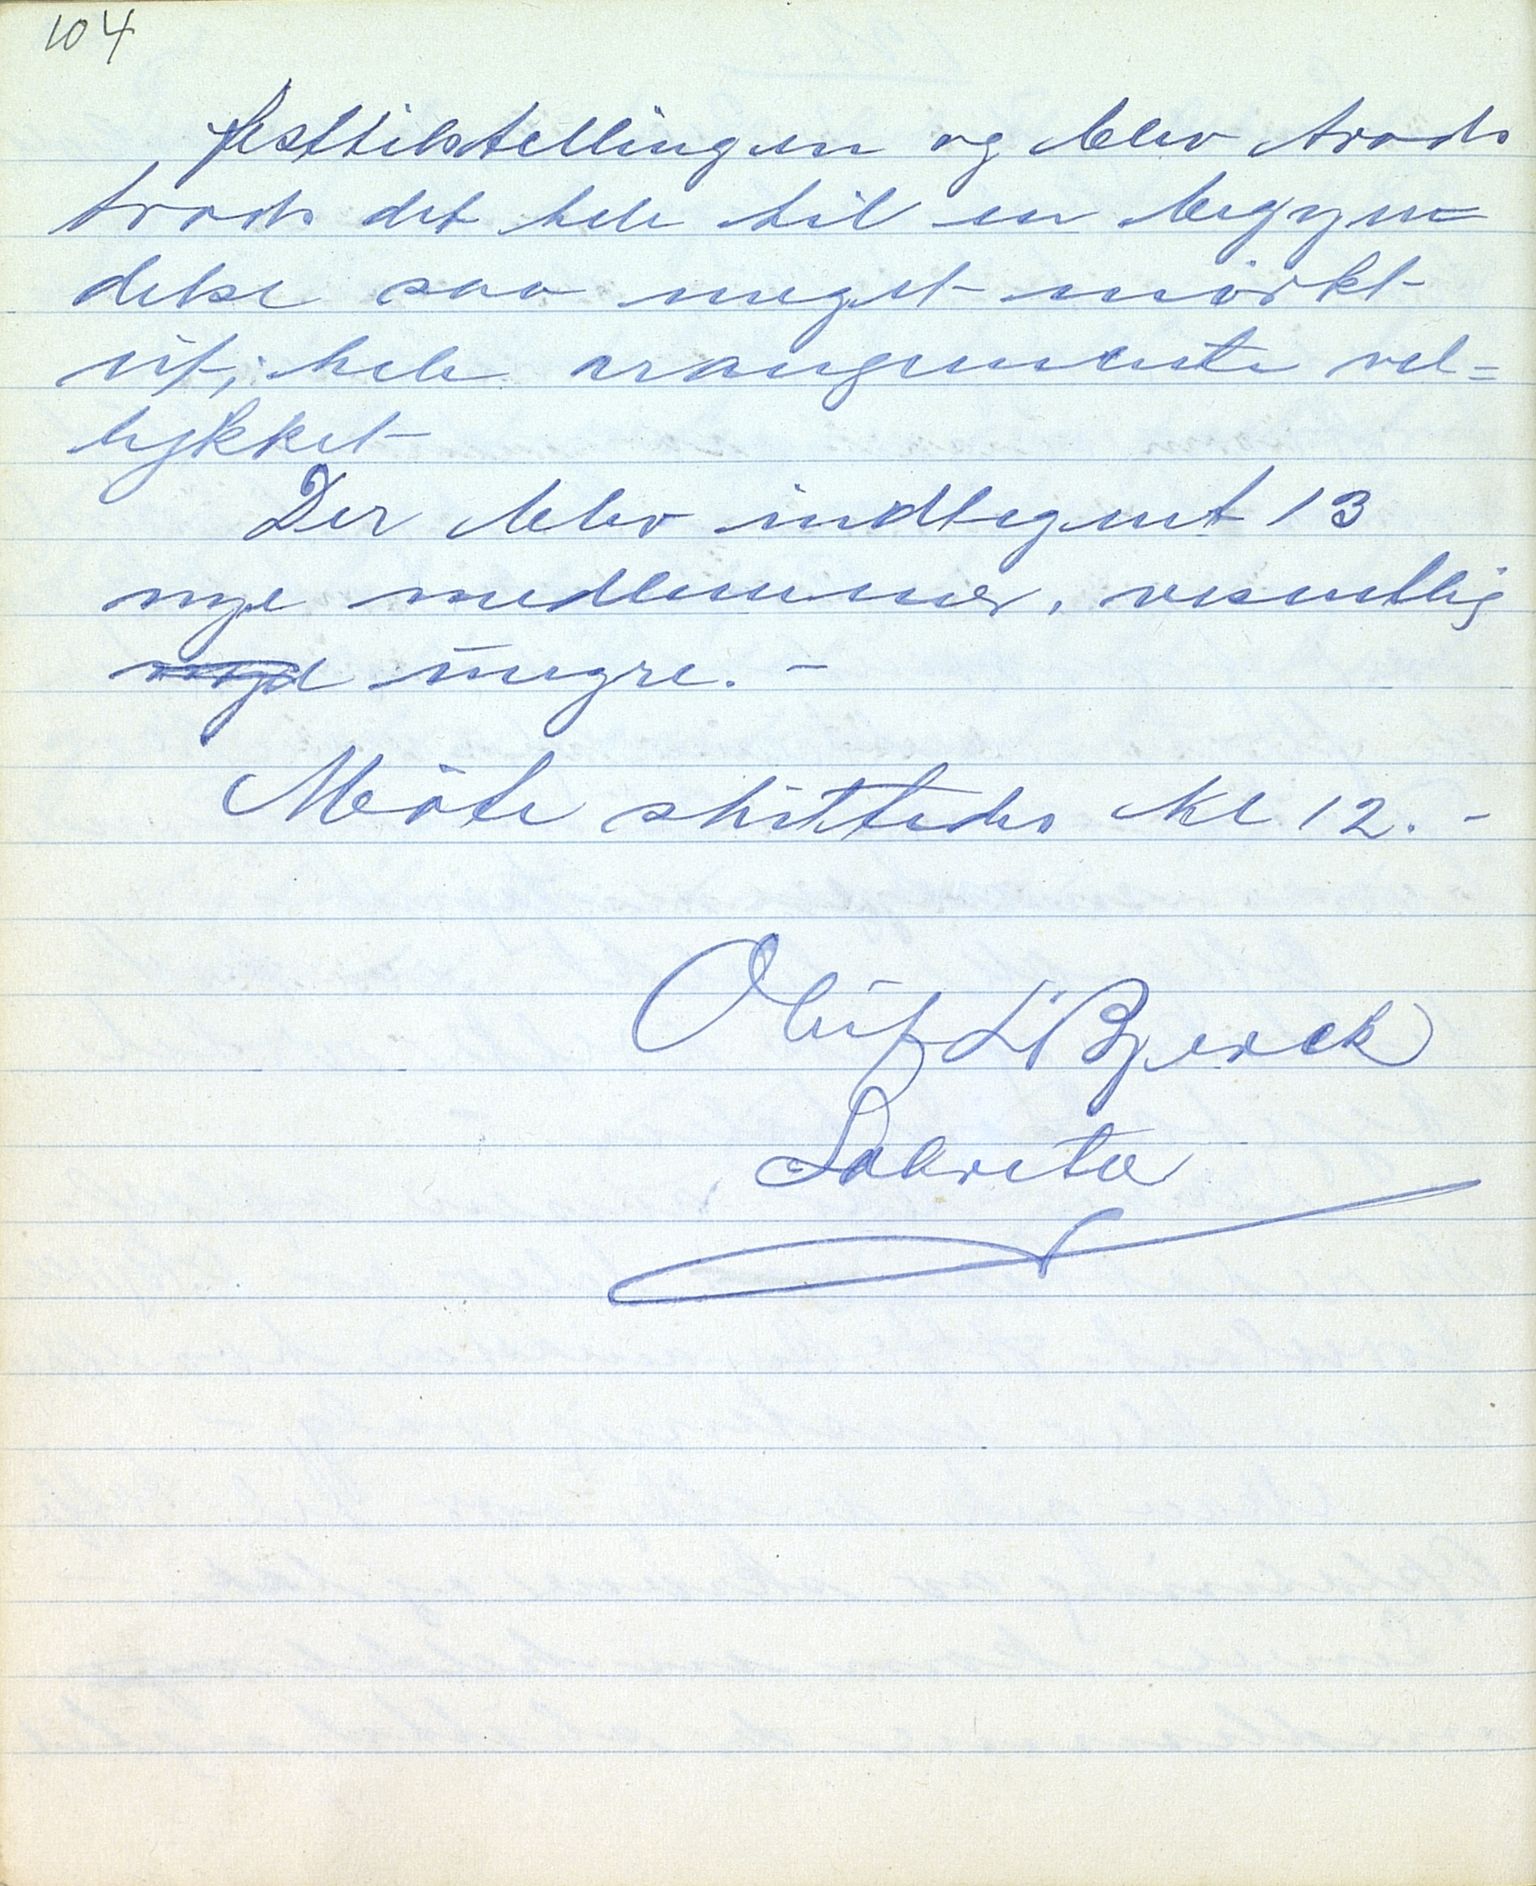 104
festtilstellingen og blev trods
trods det hele til en begyn=
delse saa meget mörkt
ut, hele arangemente vel=
lykket
Der blev indtegnet 13
nye medlemmer, vesentlig
yngre. -
Möte sluttedes kl 12. -
Oluf L Bjerck
Sekretær